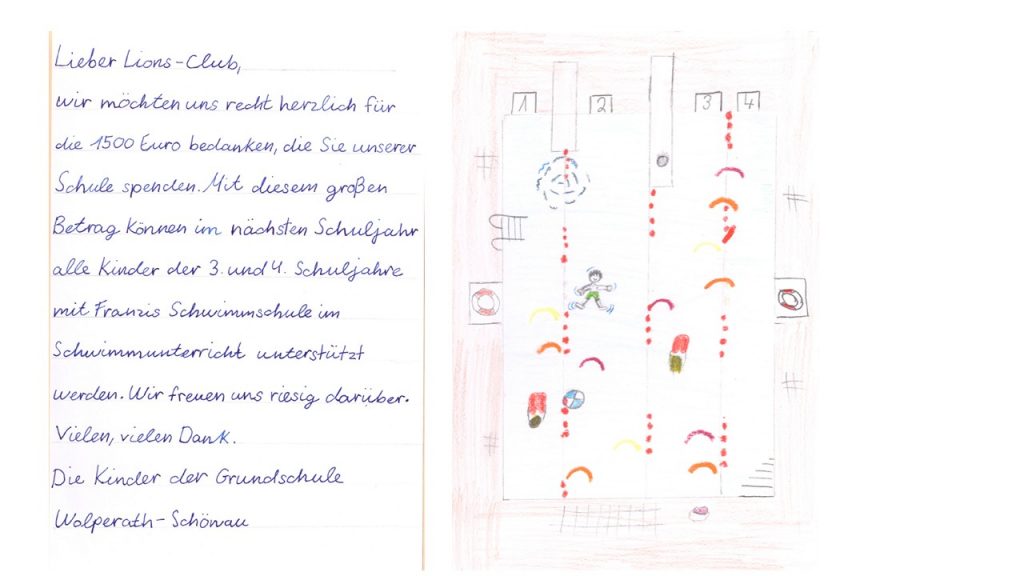 Lieber Lions-Club,
wir möchten uns recht herzlich für
die 1500 Euro bedanken, die Sie unserer
Schule spenden. Mit diesem großen
Betrag können im nächsten Schuljahr
alle Kinder der 3. und 4. Schuljahre
mit Franzis Schwimmschule im
Schwimmunterricht unterstützt
werden. Wir freuen uns riesig darüber.
Vielen, vielen Dank.
Die Kinder der Grundschule
Wolperath-Schönau
1 2 3 4